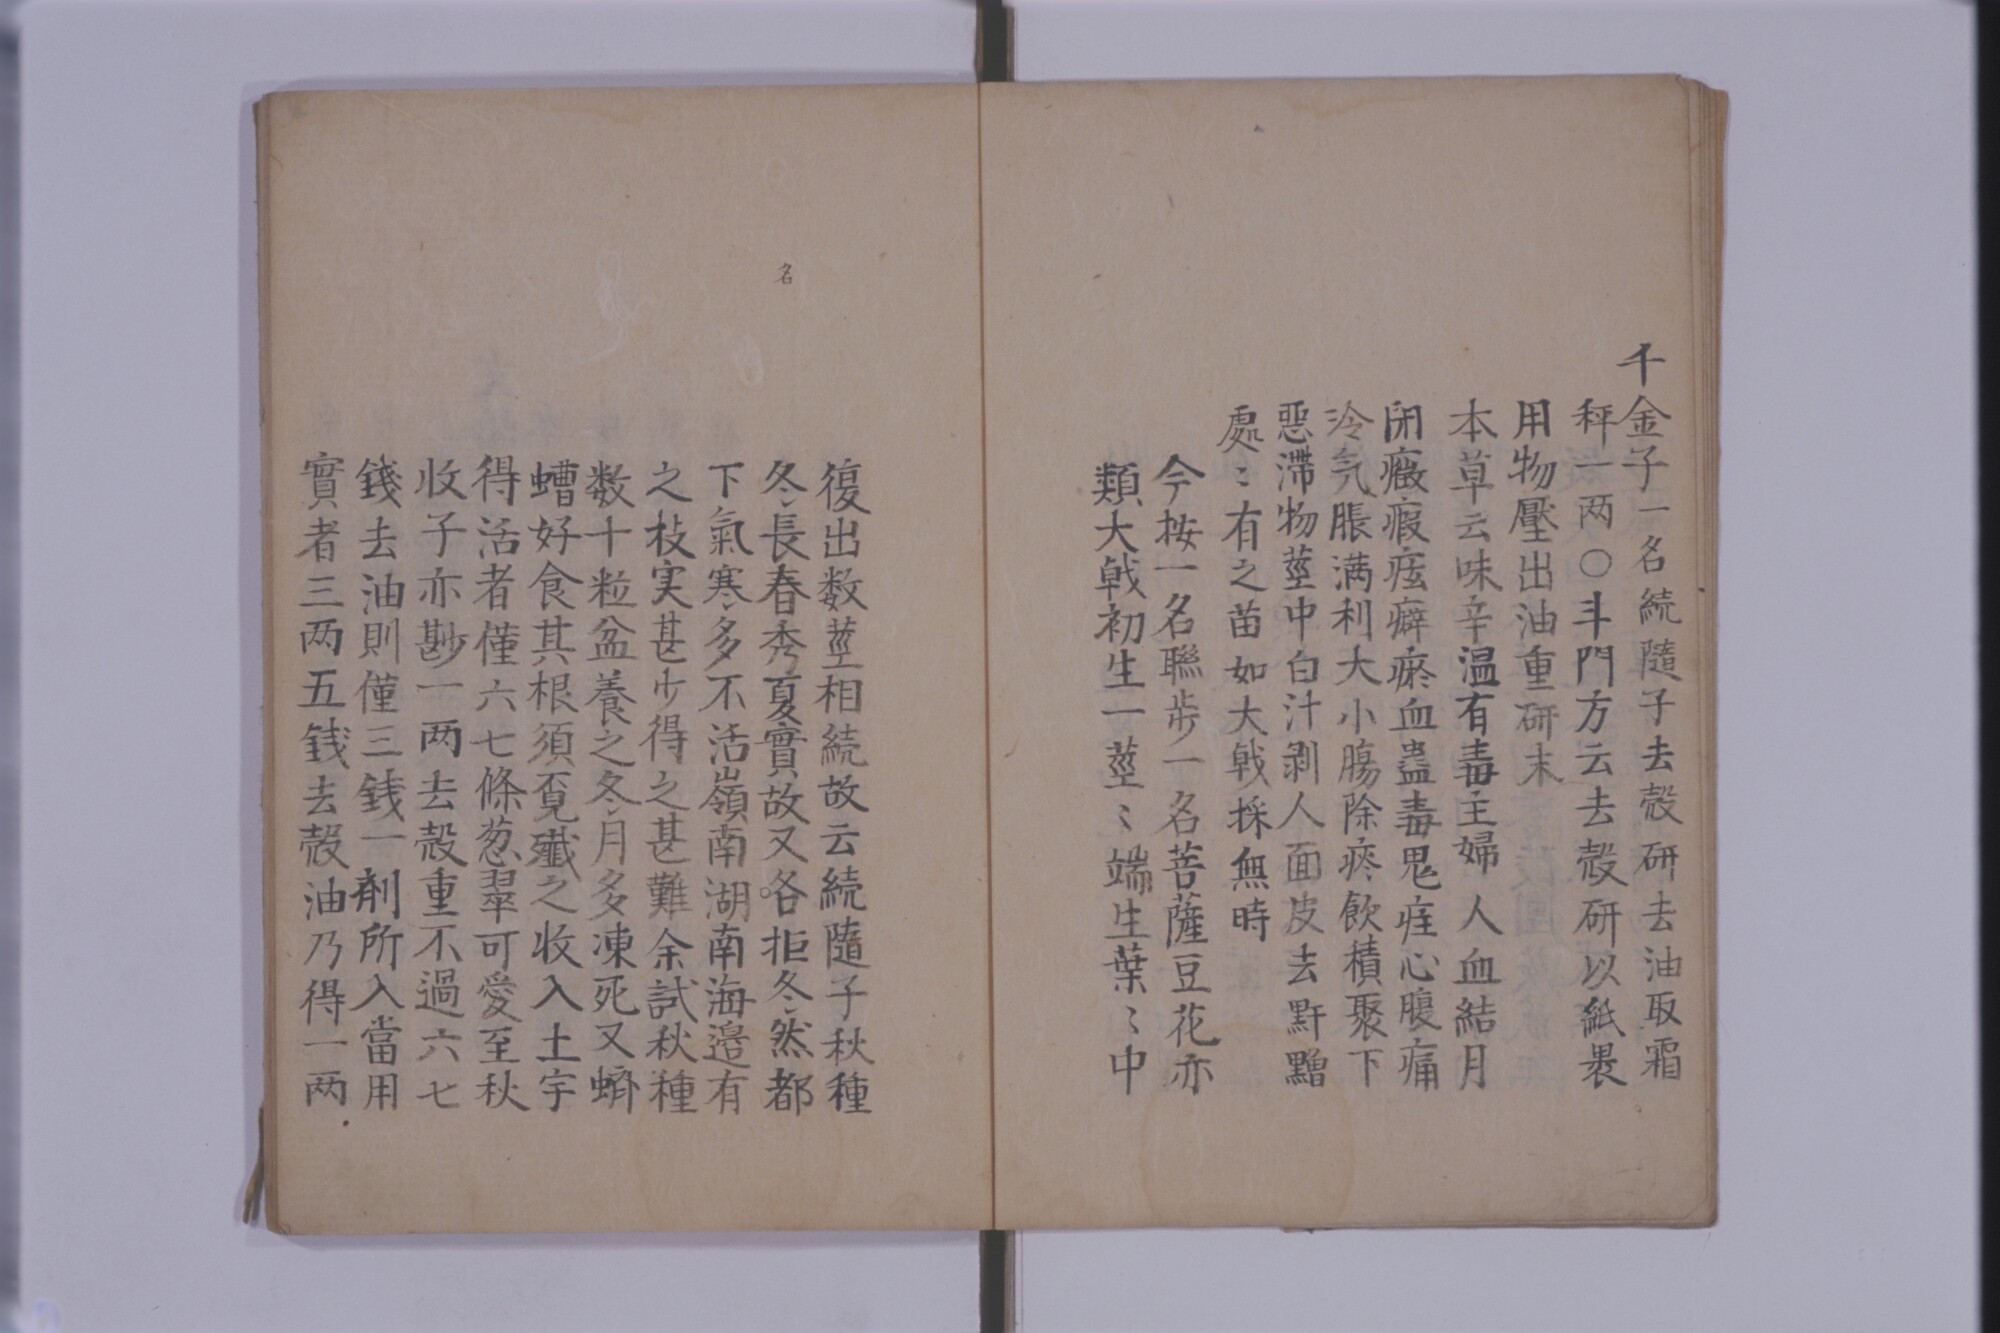 千金子一名続隨子去殻研去油取霜
秤一两〇斗門方云去殻研以紙褁
用物壓出油重研末
本草云味辛温有毒主婦人血結月
閉癥瘕痃癖瘀血蠱毒鬼疰心腹痛
冷気脹满利大小腸除痰飲積聚下
惡滯物莖中白汁剥人面皮去䵟䵴
處〻有之苗如大戟採無時
今按一名聯歩一名菩薩豆花亦
類大戟初生一莖〻端生葉〻中
復出数莖相続故云続隨子秋種
冬長春秀夏實故又各拒冬然都
名
下氣寒多不活嶺南湖南海邉有
之枝实甚少得之甚難余試秋種
数十粒盆養之冬月多凍死又蠐
螬好食其根須覓殱之收入土宇
得活者僅六七條葱翠可愛至秋
收子亦尠一两去殻重不過六七
錢去油則僅三銭一剤所入當用
實者三两五銭去殻油乃得一两